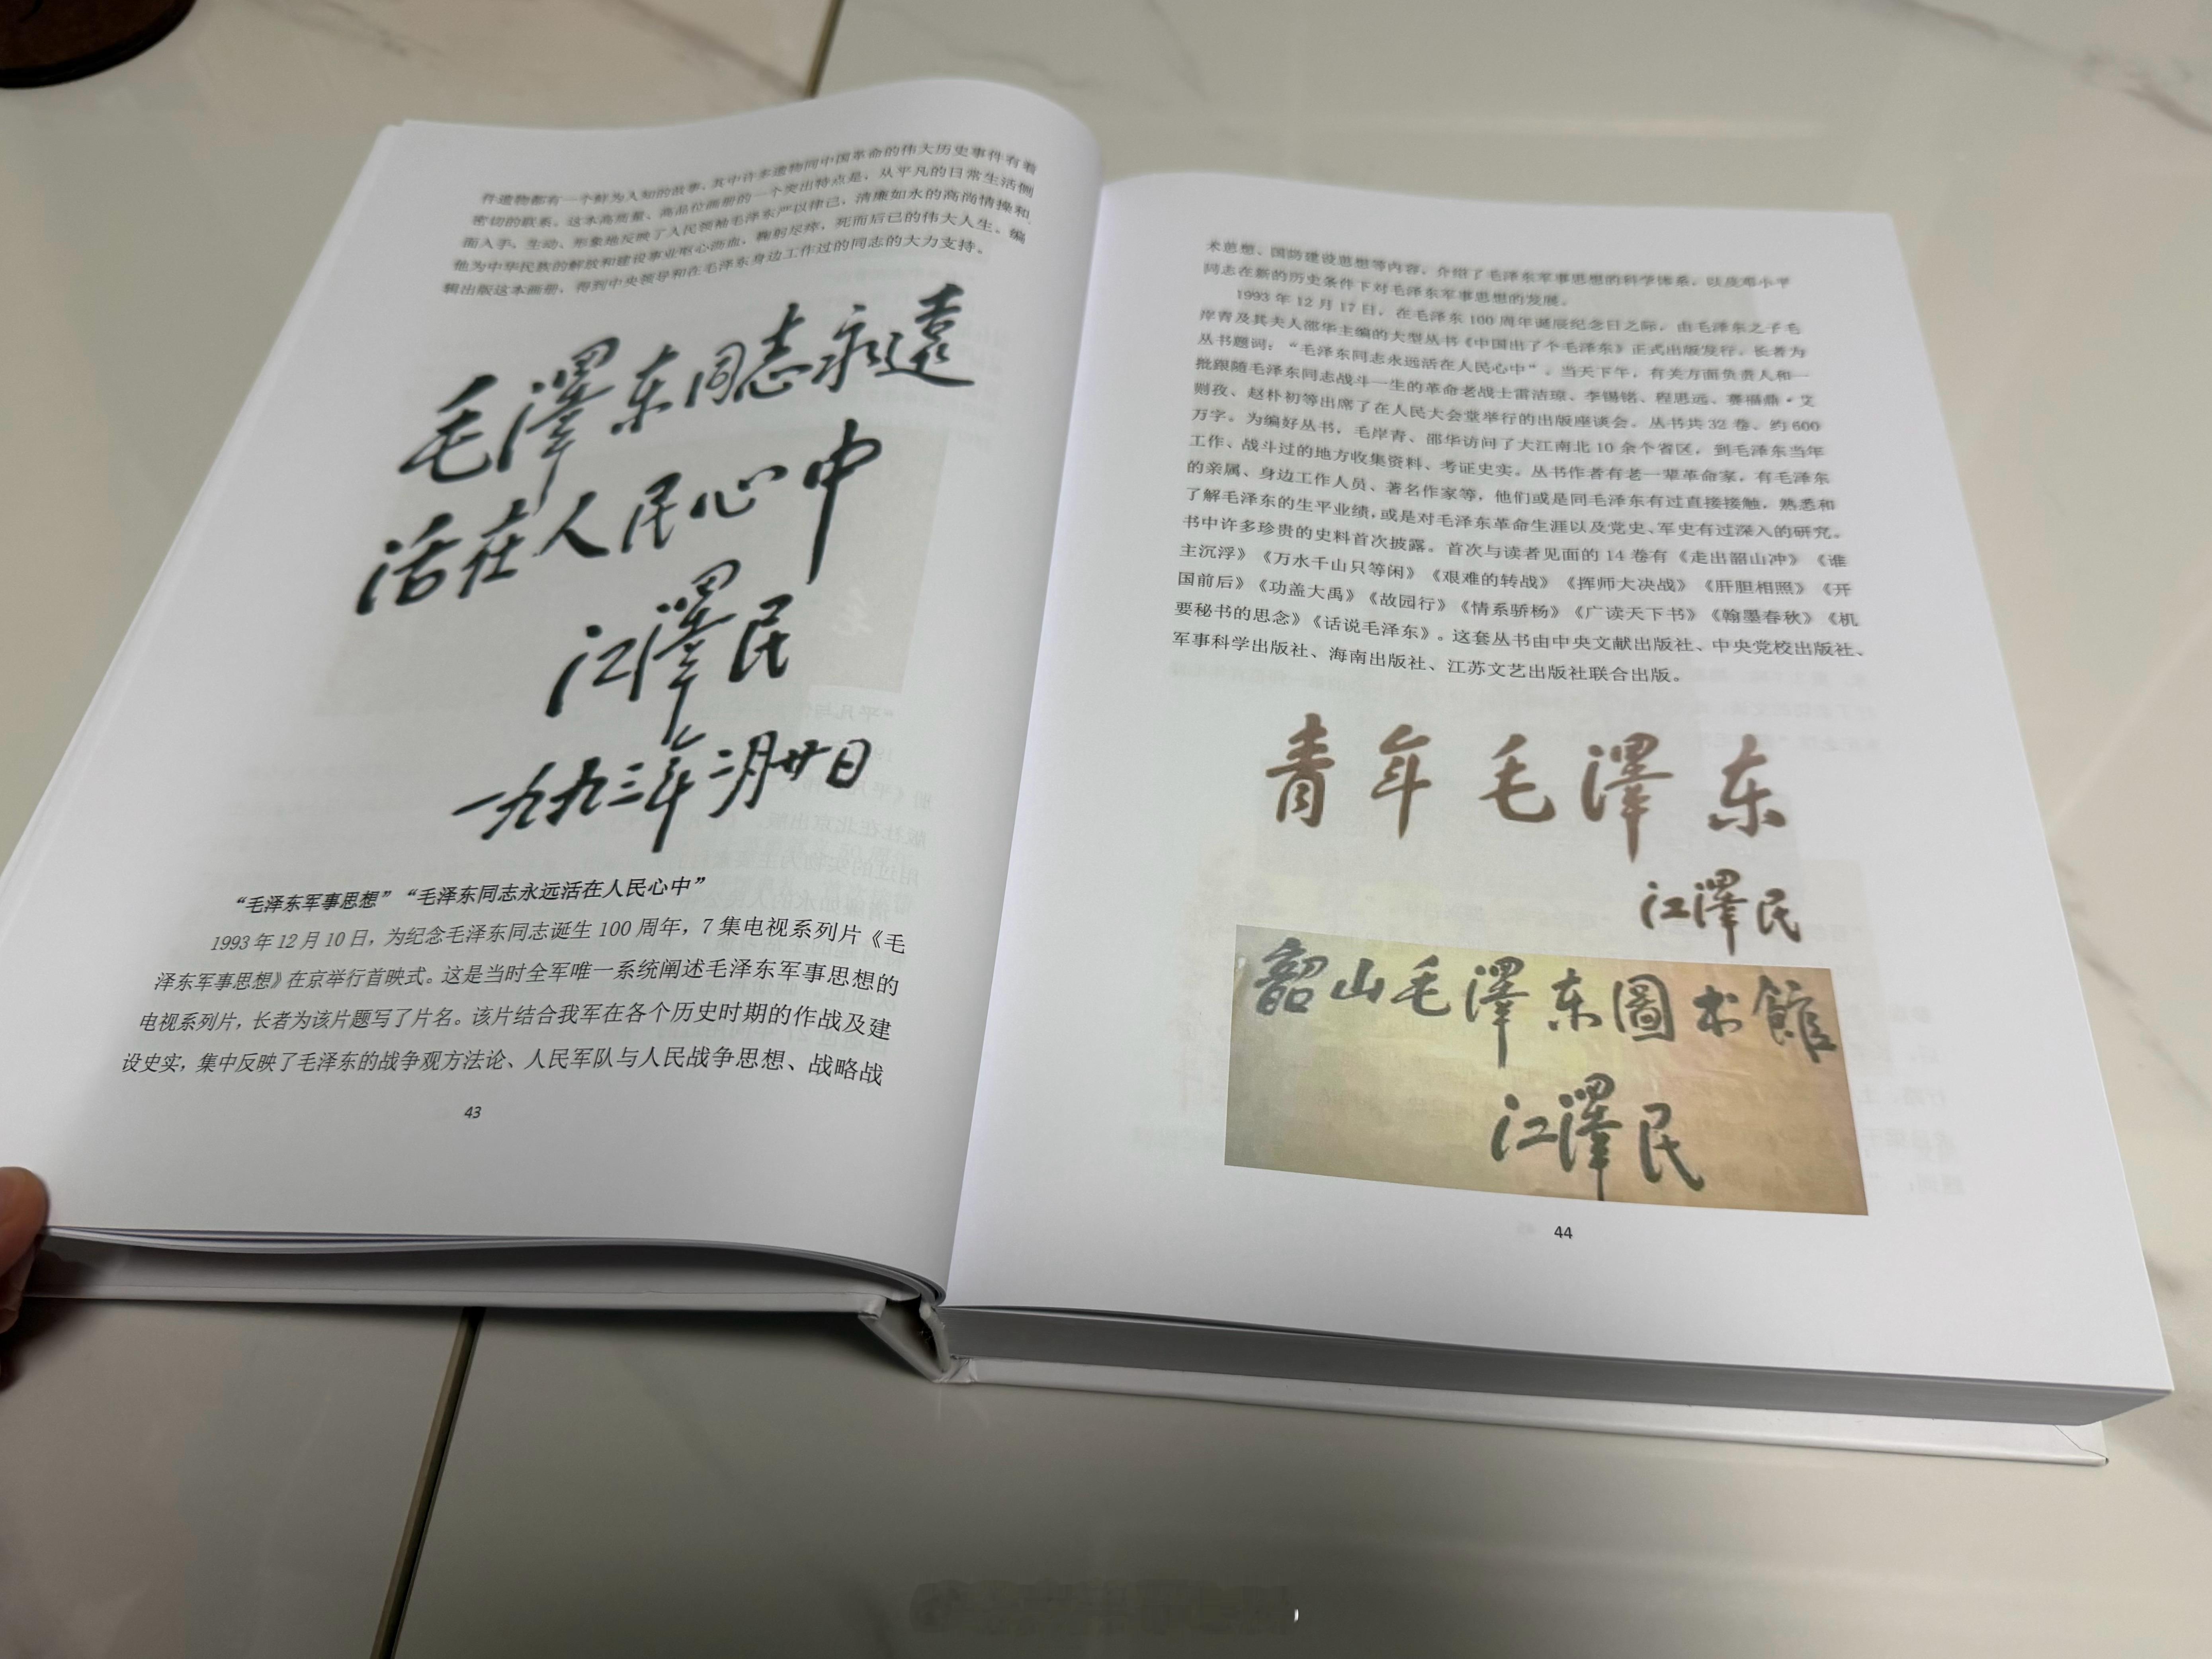 件遗物都有一个鲜为人知的故事，其中许多遗物同中国革命的伟大历史事件有着
密切的联系。这本高质量、高品位画册的一个突出特点是，从平凡的日常生活侧
面入手，生动、形象地反映了人民领袖毛泽东严以律己，清廉如水的高尚情操和
他为中华民族的解放和建设事业呕心沥血，鞠躬尽瘁，死而后已的伟大人生。编
辑出版这本画册，得到中央领导和在毛泽东身边工作过的同志的大力支持。
毛澤东同志永遠
活在人民心中
江澤民
一九九三年二月廿日
“毛泽东军事思想”“毛泽东同志永远活在人民心中”
1993年12月10日，为纪念毛泽东同志诞生100周年，7集电视系列片《毛
泽东军事思想》在京举行首映式。这是当时全军唯一系统阐述毛泽东军事思想的
电视系列片，长者为该片题写了片名。该片结合我军在各个历史时期的作战及建
设史实，集中反映了毛泽东的战争观方法论、人民军队与人民战争思想、战略战
43
术思想、国防建设思想等内容，介绍了毛泽东军事思想的科学体系，以及邓小平
同志在新的历史条件下对毛泽东军事思想的发展。
1993年12月17日，在毛泽东100周年诞辰纪念日之际，由毛泽东之子毛
岸青及其夫人邵华主编的大型丛书《中国出了个毛泽东》正式出版发行。长者为
丛书题词：“毛泽东同志永远活在人民心中”。当天下午，有关方面负责人和一
批跟随毛泽东同志战斗一生的革命老战士雷洁琼、李锡铭、程思远、赛福鼎·艾
则孜、赵朴初等出席了在人民大会堂举行的出版座谈会。丛书共32卷、约600
万字。为编好丛书，毛岸青、邵华访问了大江南北10余个省区，到毛泽东当年
工作、战斗过的地方收集资料、考证史实。丛书作者有老一辈革命家，有毛泽东
的亲属、身边工作人员、著名作家等，他们或是同毛泽东有过直接接触，熟悉和
了解毛泽东的生平业绩，或是对毛泽东革命生涯以及党史、军史有过深入的研究。
书中许多珍贵的史料首次披露。首次与读者见面的14卷有《走出韶山冲》《谁
主沉浮》《万水千山只等闲》《艰难的转战》《挥师大决战》《肝胆相照》《开
国前后》《功盖大禹》《故园行》《情系骄杨》《广读天下书》《翰墨春秋》《机
要秘书的思念》《话说毛泽东》。这套丛书由中央文献出版社、中央党校出版社、
军事科学出版社、海南出版社、江苏文艺出版社联合出版。
青年毛澤东
江澤民
韶山毛澤东圖书館
江澤民
44